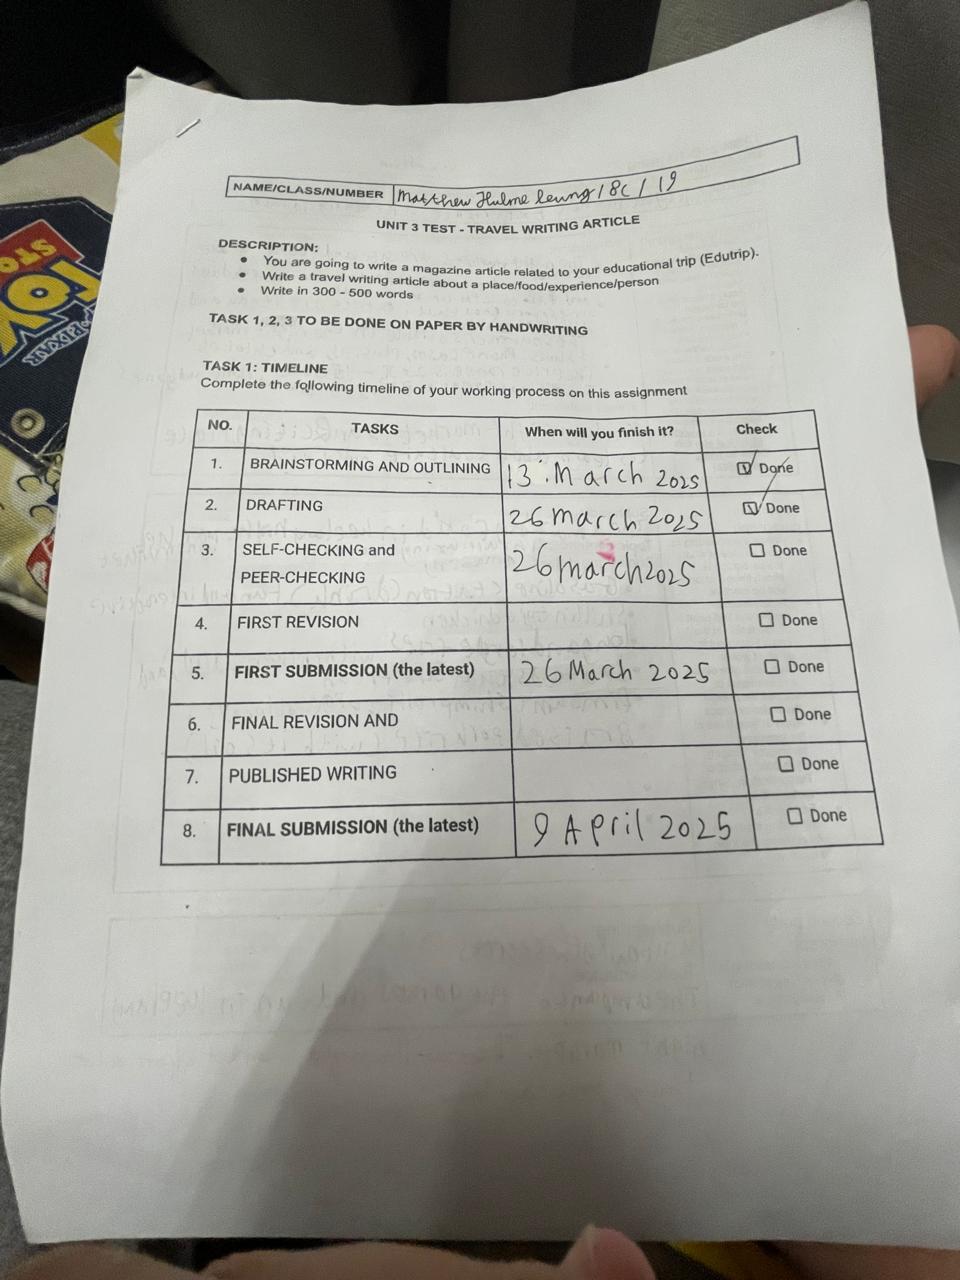 NAME/CLASS/NUMBER Matthew Hulme leung / 8C / 19
UNIT 3 TEST - TRAVEL WRITING ARTICLE
DESCRIPTION:
• You are going to write a magazine article related to your educational trip (Edutrip).
• Write a travel writing article about a place/food/experience/person
• Write in 300 - 500 words
TASK 1, 2, 3 TO BE DONE ON PAPER BY HANDWRITING
TASK 1: TIMELINE
Complete the following timeline of your working process on this assignment
NO. TASKS When will you finish it? Check
1. BRAINSTORMING AND OUTLINING 13 March 2025 ☑ Done
2. DRAFTING 26 march 2025 ☑ Done
3. SELF-CHECKING and
PEER-CHECKING 26 march 2025 ☐ Done
4. FIRST REVISION ☐ Done
5. FIRST SUBMISSION (the latest) 26 March 2025 ☐ Done
6. FINAL REVISION AND ☐ Done
7. PUBLISHED WRITING ☐ Done
8. FINAL SUBMISSION (the latest) 9 April 2025 ☐ Done
TOY
STO
PIXAR